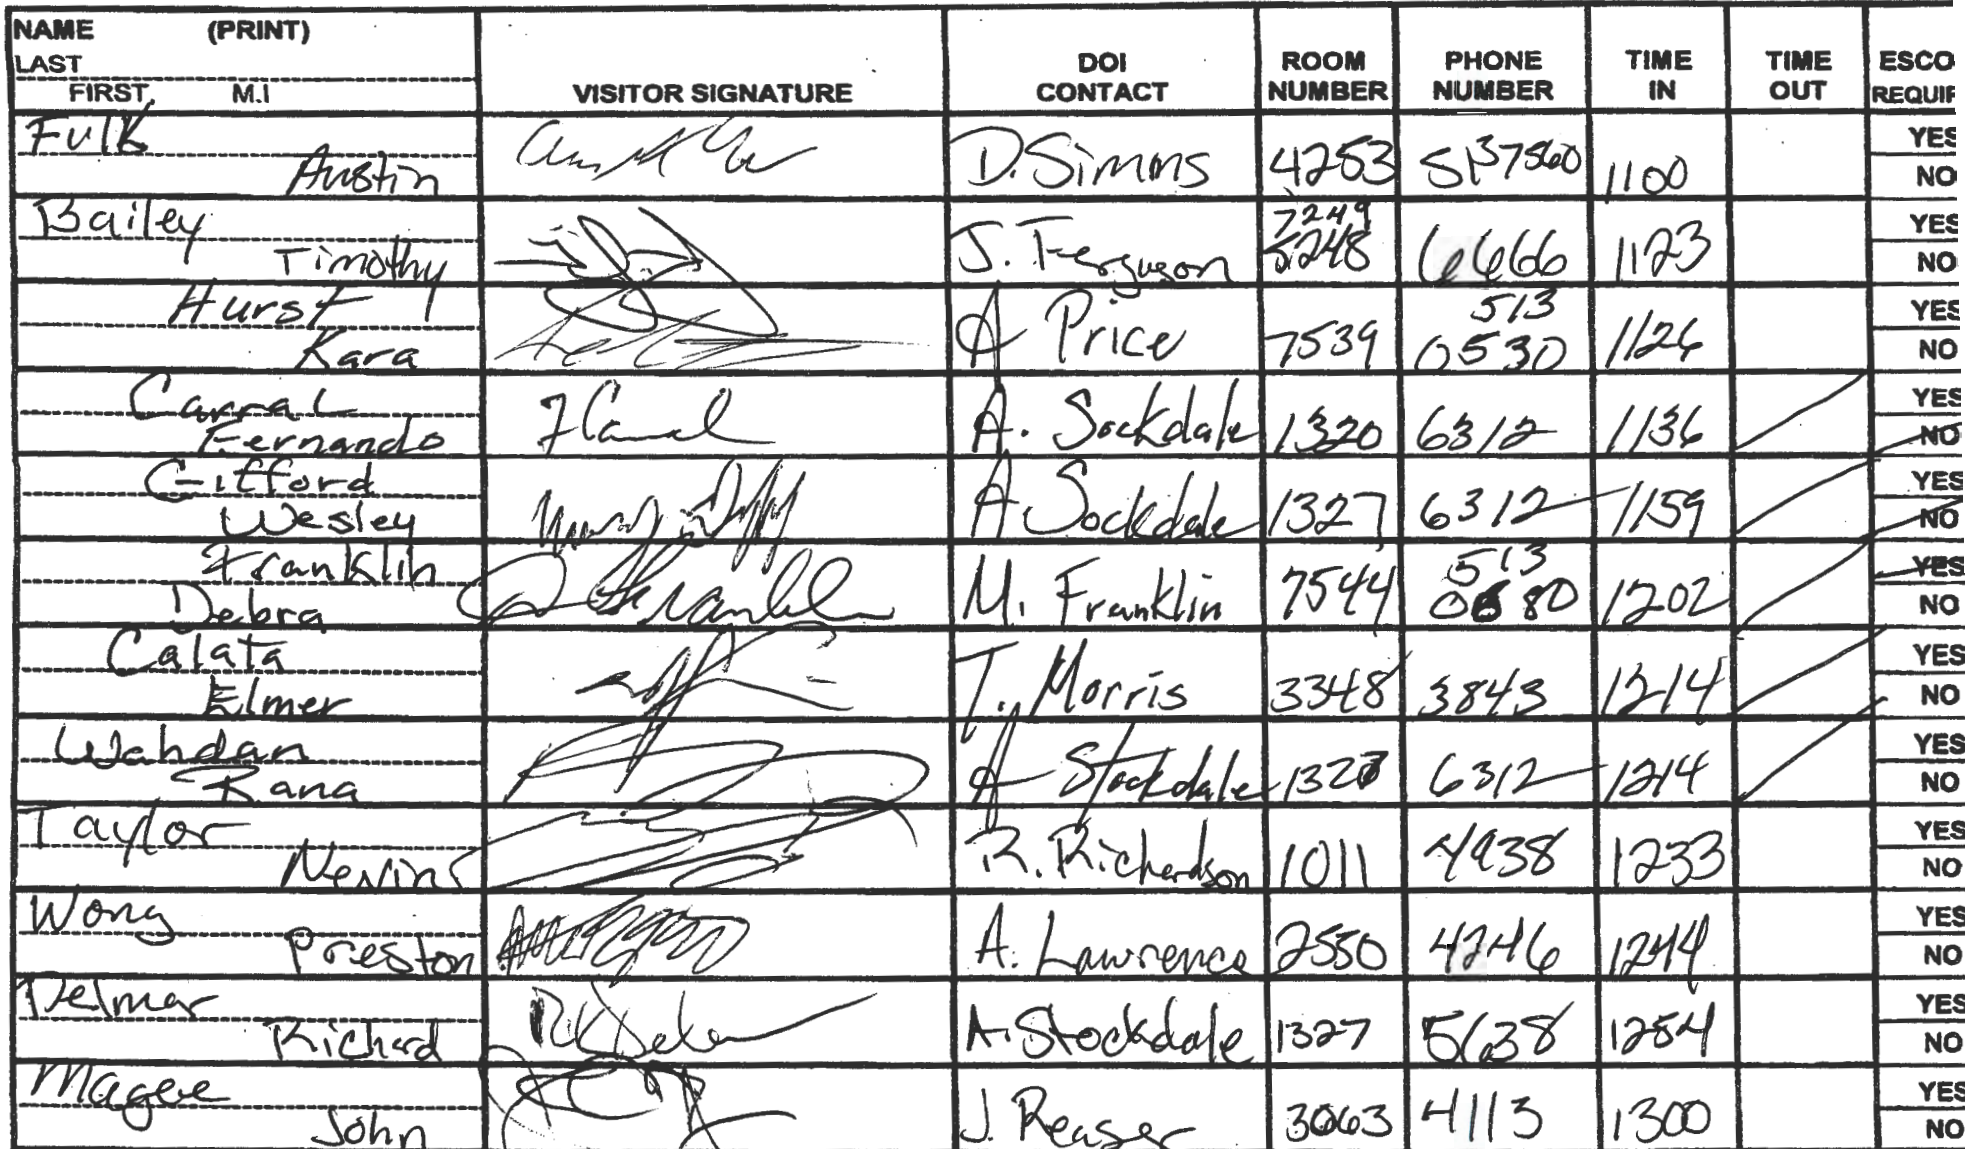 NAME (PRINT)
LAST
FIRST, M.I
VISITOR SIGNATURE
DOI CONTACT
ROOM NUMBER
PHONE NUMBER
TIME IN
TIME OUT
ESCO
REQUIR
Fulk
Austin D. Simms 4253 5137560 1100 YES NO
Bailey
Timothy J. Ferguson 7249 5248 1123 YES NO
Hurst
Kara A Price 7539 513 0530 1126 YES NO
Carral
Fernando A. Sockdale 1320 6312 1136 YES NO
Gifford
Wesley A Sockdale 1327 6312 1159 YES NO
Franklin
Debra M. Franklin 7544 513 1202 YES NO
Calata
Elmer T. Morris 3348 3843 1214 YES NO
Wahdan
Rana A Stockdale 6312 1214 YES NO
Taylor
R. Richardson 1011 4938 1233 YES NO
Wong
Preston A. Lawrence 2550 4246 1244 YES NO
Delmar
Richard A. Stockdale 1327 1254 YES NO
Magee
John J. Reaser 3063 4113 1300 YES NO